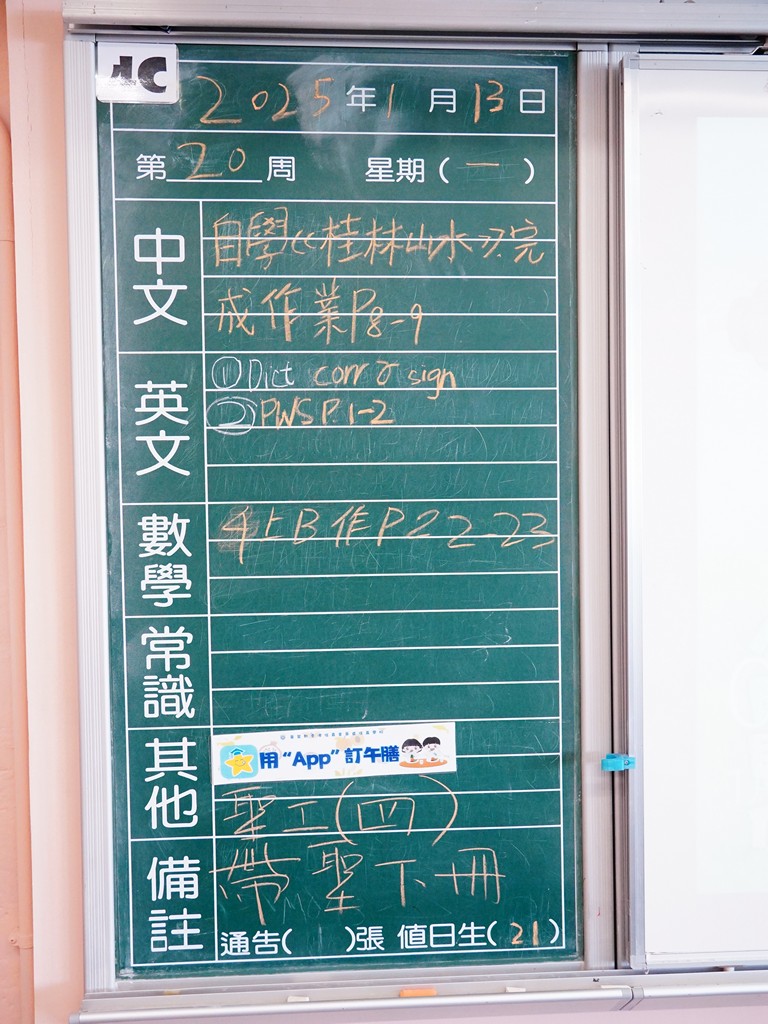 4C
2025年1月13日
第20周 星期(一)
中文
自學《桂林山水》完
成作業P8-9
英文
①Dict corr & sign
②PWS P.1-2
數學
4上B作P22-23
常識
其他
用“App”訂午膳
聖工(四)
備註
帶聖下冊
通告( )張 值日生(21)